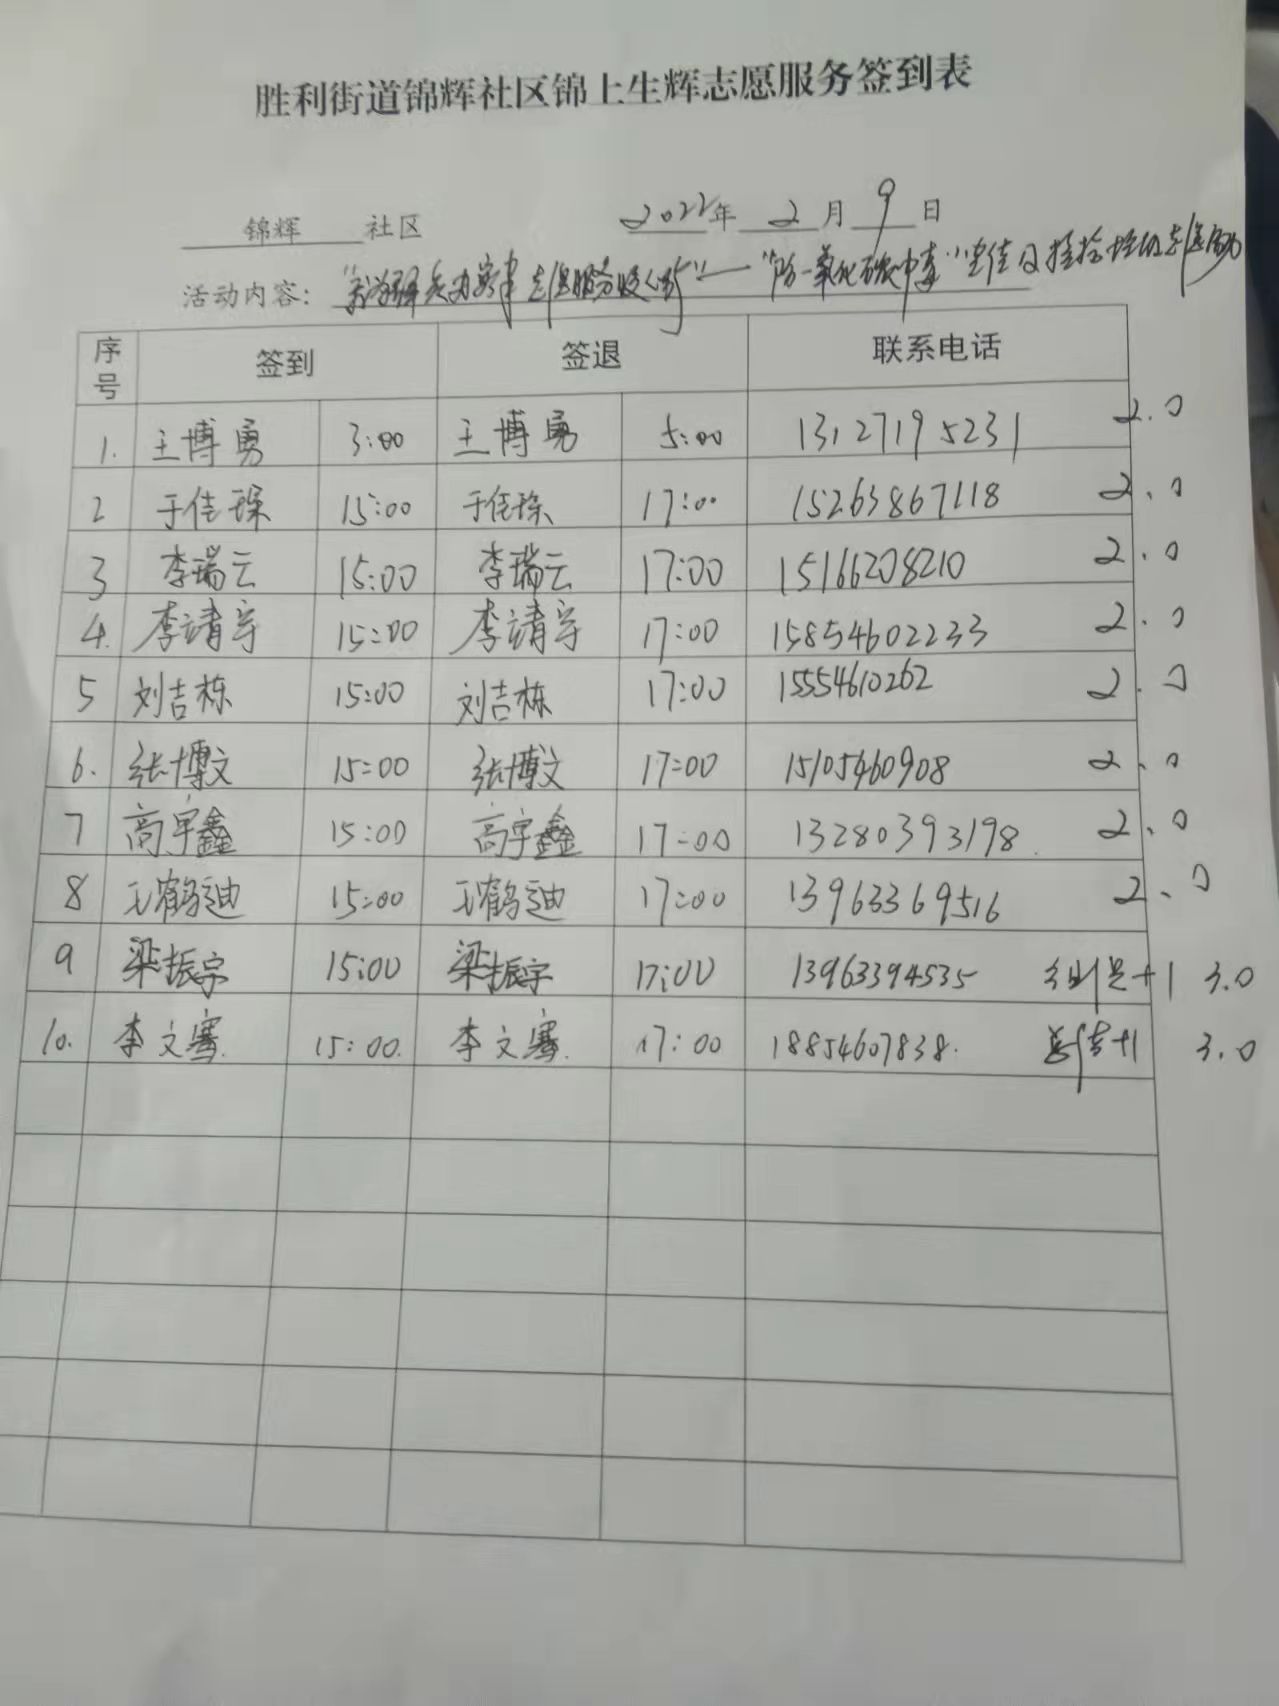 胜利街道锦辉社区锦上生辉志愿服务签到表
锦辉 社区 2022年 2 月 9 日
活动内容: 志愿服务 "防一氧化碳中毒" 宣传及
序号 签到 签退 联系电话
1. 王博勇 3:00 王博勇 5:00 13127195231 2.0
2 于佳琛 15:00 于佳琛 17:00 15263867118 2.0
3 李瑞云 15:00 李瑞云 17:00 15166208210 2.0
4. 李靖宇 15:00 李靖宇 17:00 15854602233 2.0
5 刘吉栋 15:00 刘吉栋 17:00 15554610262 2.0
6. 张博文 15:00 张博文 17:00 15105460908 2.0
7 高宇鑫 15:00 高宇鑫 17:00 13280393198 2.0
8 王鹤迪 15:00 王鹤迪 17:00 13963369516 2.0
9 梁振宇 15:00 梁振宇 17:00 13963394535 +1 3.0
10. 李文骞 15:00 李文骞 17:00 18854607838 +1 3.0